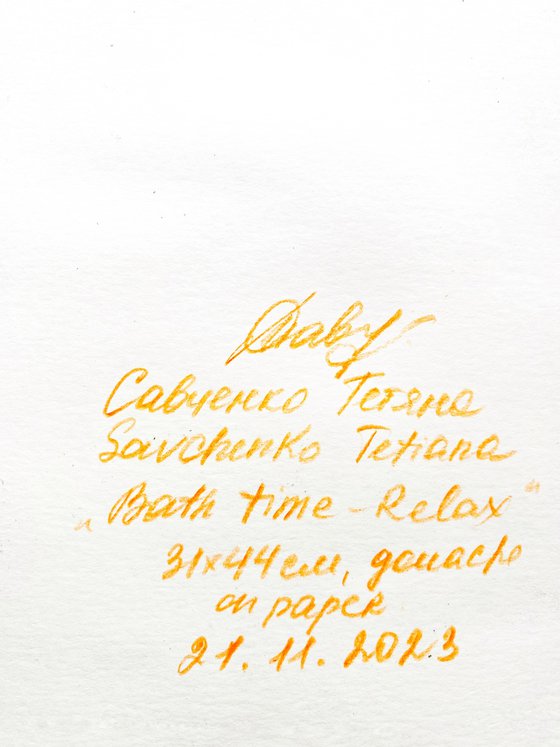 Савченко Тетяна
Savchenko Tetiana
„Bath time - Relax"
31x44 см, gouache
on paper
21. 11. 2023